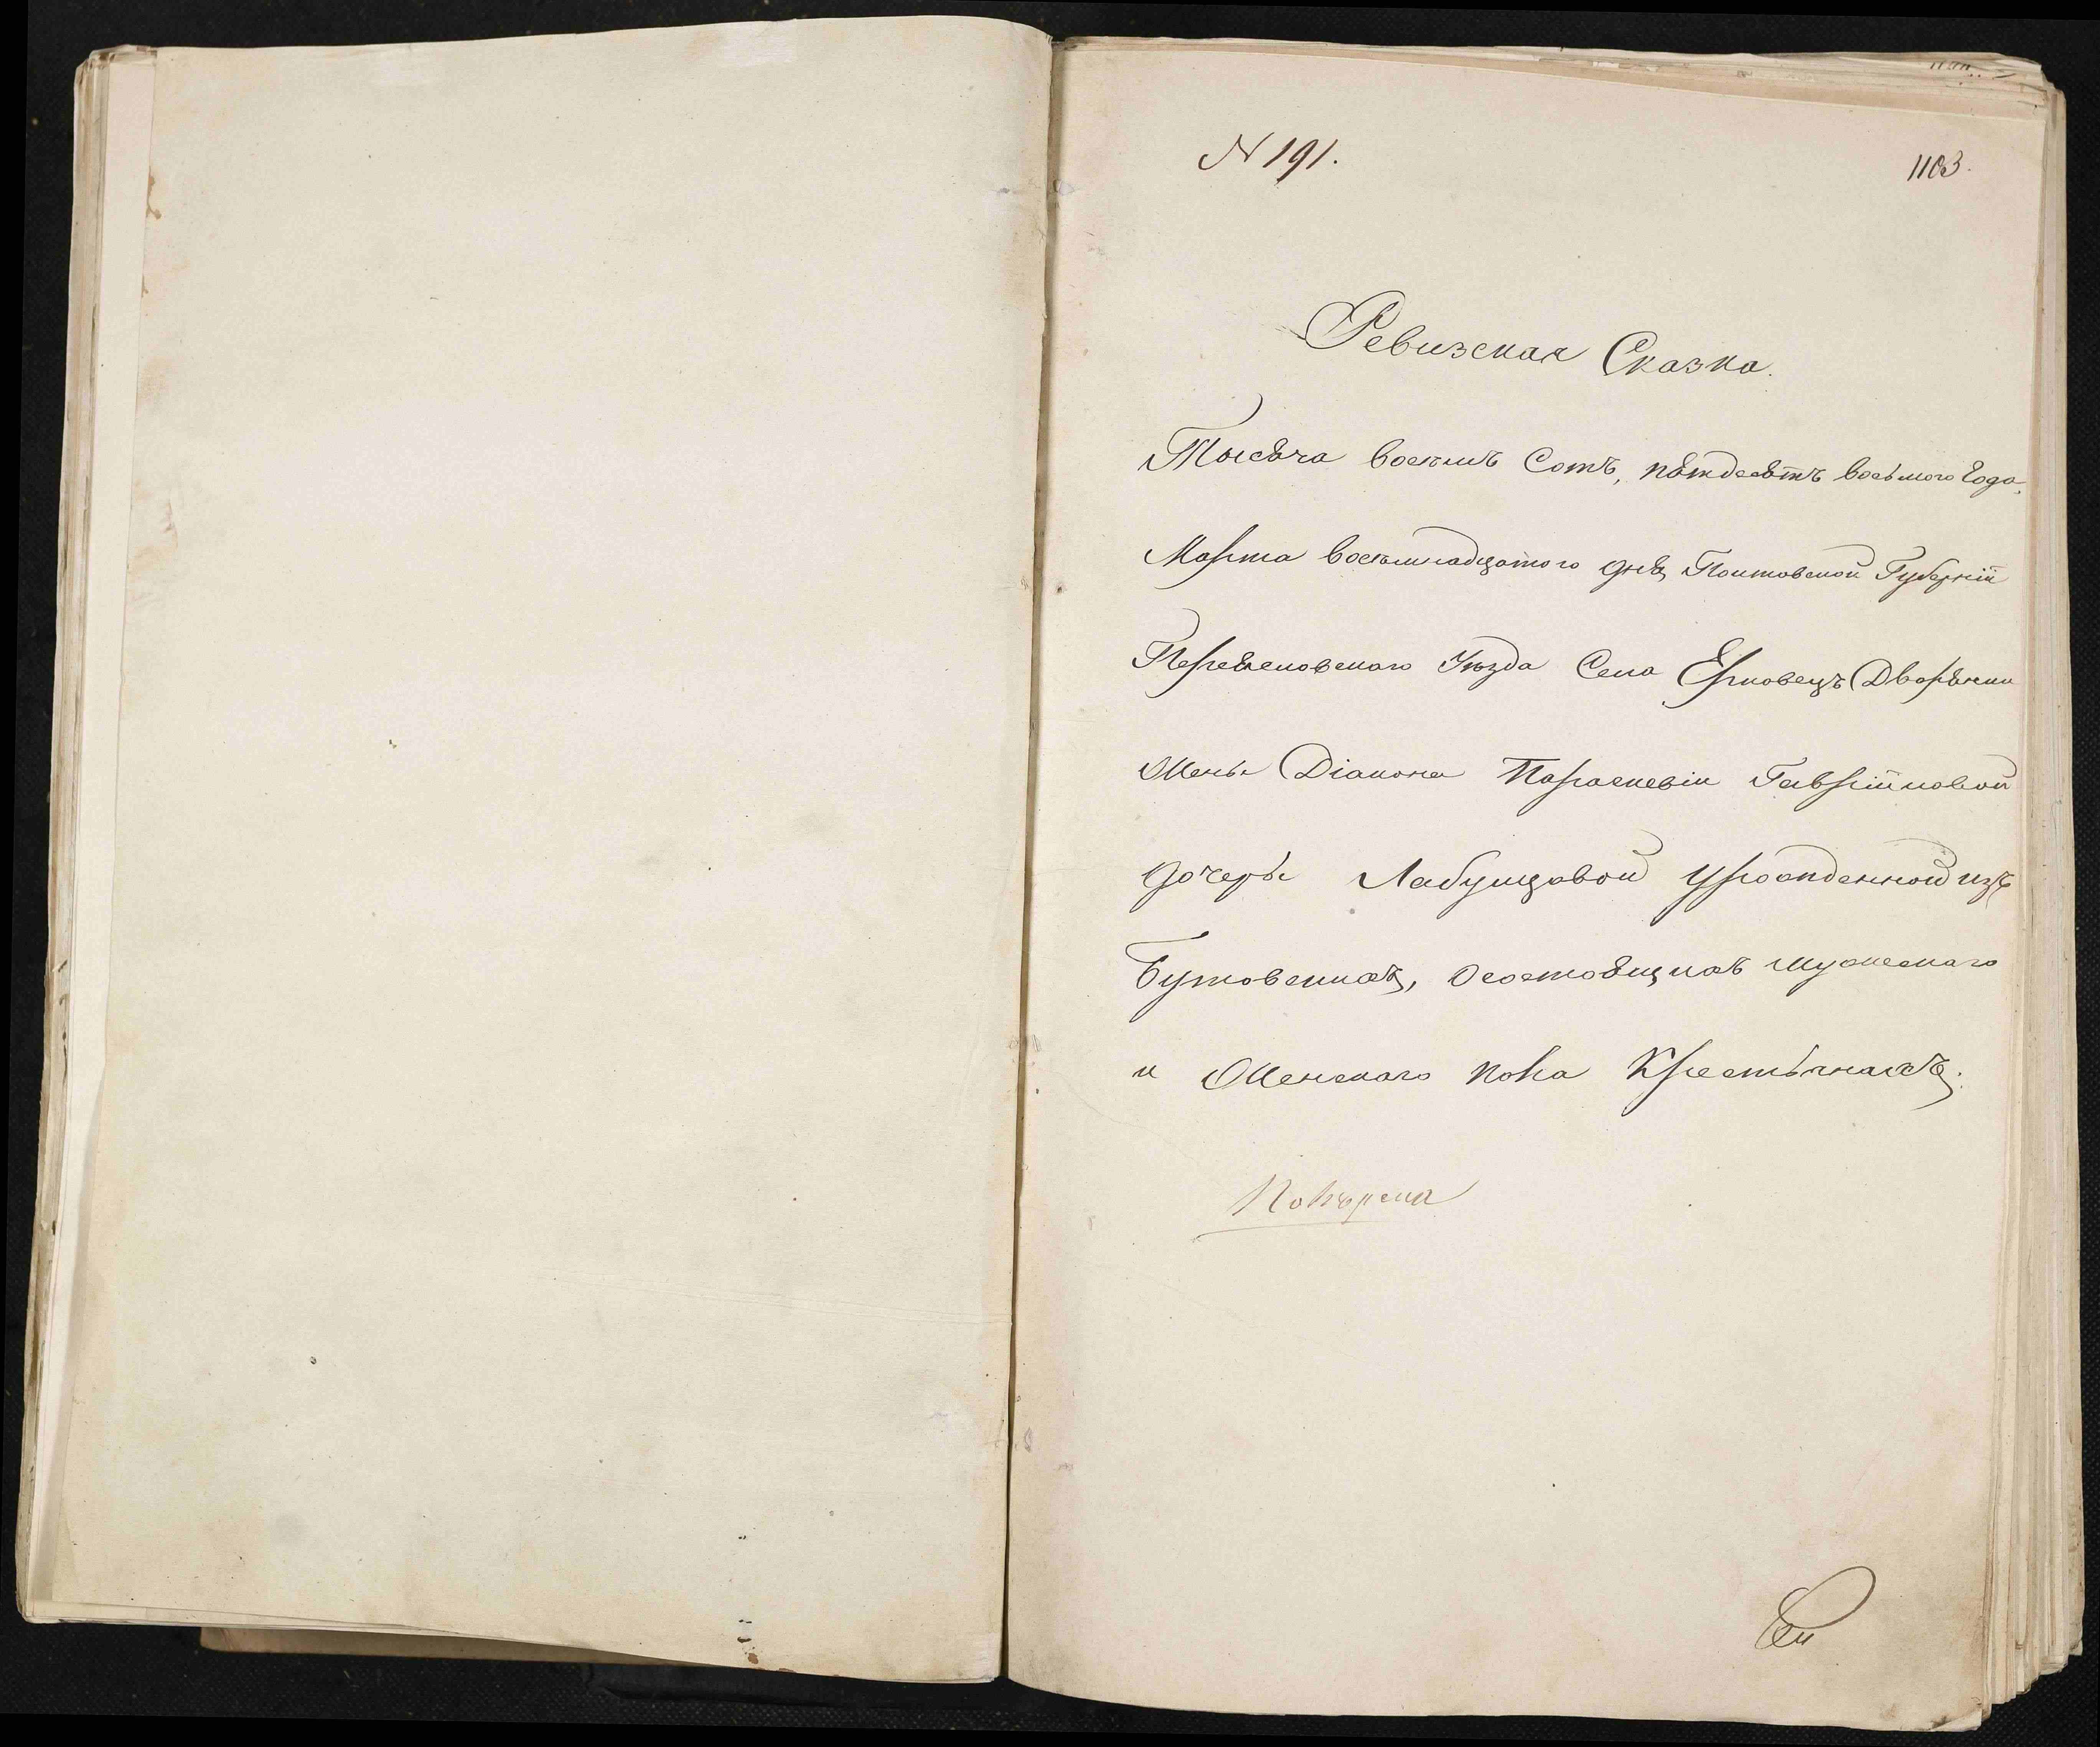 № 191.
1103.
Ревизская Сказка.
Тысяча восемь Сотъ, пятдесятъ восьмого Года,
Марта восемнадцатого дня, Полтавской Губерніи
Переяславского Уѣзда Села Ерковецъ Дворянки
Жены Діакона Параскевіи Гавріиловой
дочери Лабунцовой урожденной изъ
Бутовскихъ, о состоящихъ мужескаго
и Женскаго пола Крестьянахъ.